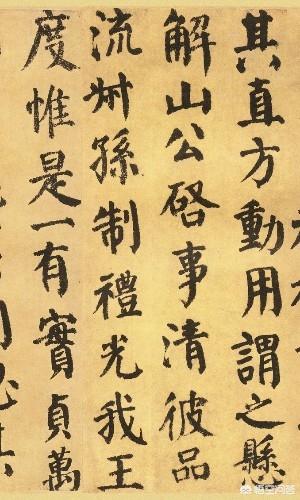 其直方動用謂之縣
解山公啓事清彼品
流叔孫制禮光我王
度惟是一有實貞萬
悟空问答